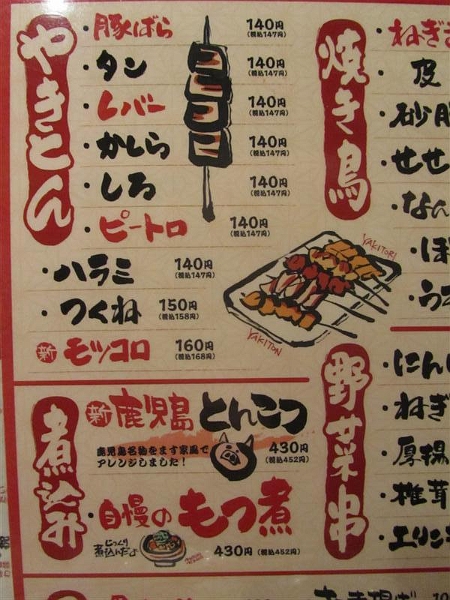 やきとん
・豚ばら 140円
(税込147円)
・タン 140円
(税込147円)
・レバー 140円
(税込147円)
・かしら 140円
(税込147円)
・しろ 140円
(税込147円)
・ピートロ 140円
(税込147円)
・ハラミ 140円
(税込147円)
・つくね 150円
(税込158円)
新 モツコロ 160円
(税込168円)
YAKITORI
YAKITON
焼き鳥
・ねぎ
・皮
・砂肝
・せせ
・なん
・ぼ
・うず
煮込み
新 鹿児島 とんこつ
鹿児島名物をます家風で
アレンジしました!
430円
(税込452円)
・自慢の もつ煮
じっくり
煮込んだよ
430円 (税込452円)
野菜串
・にんに
・ねぎ
・厚揚
・椎茸
・エリン